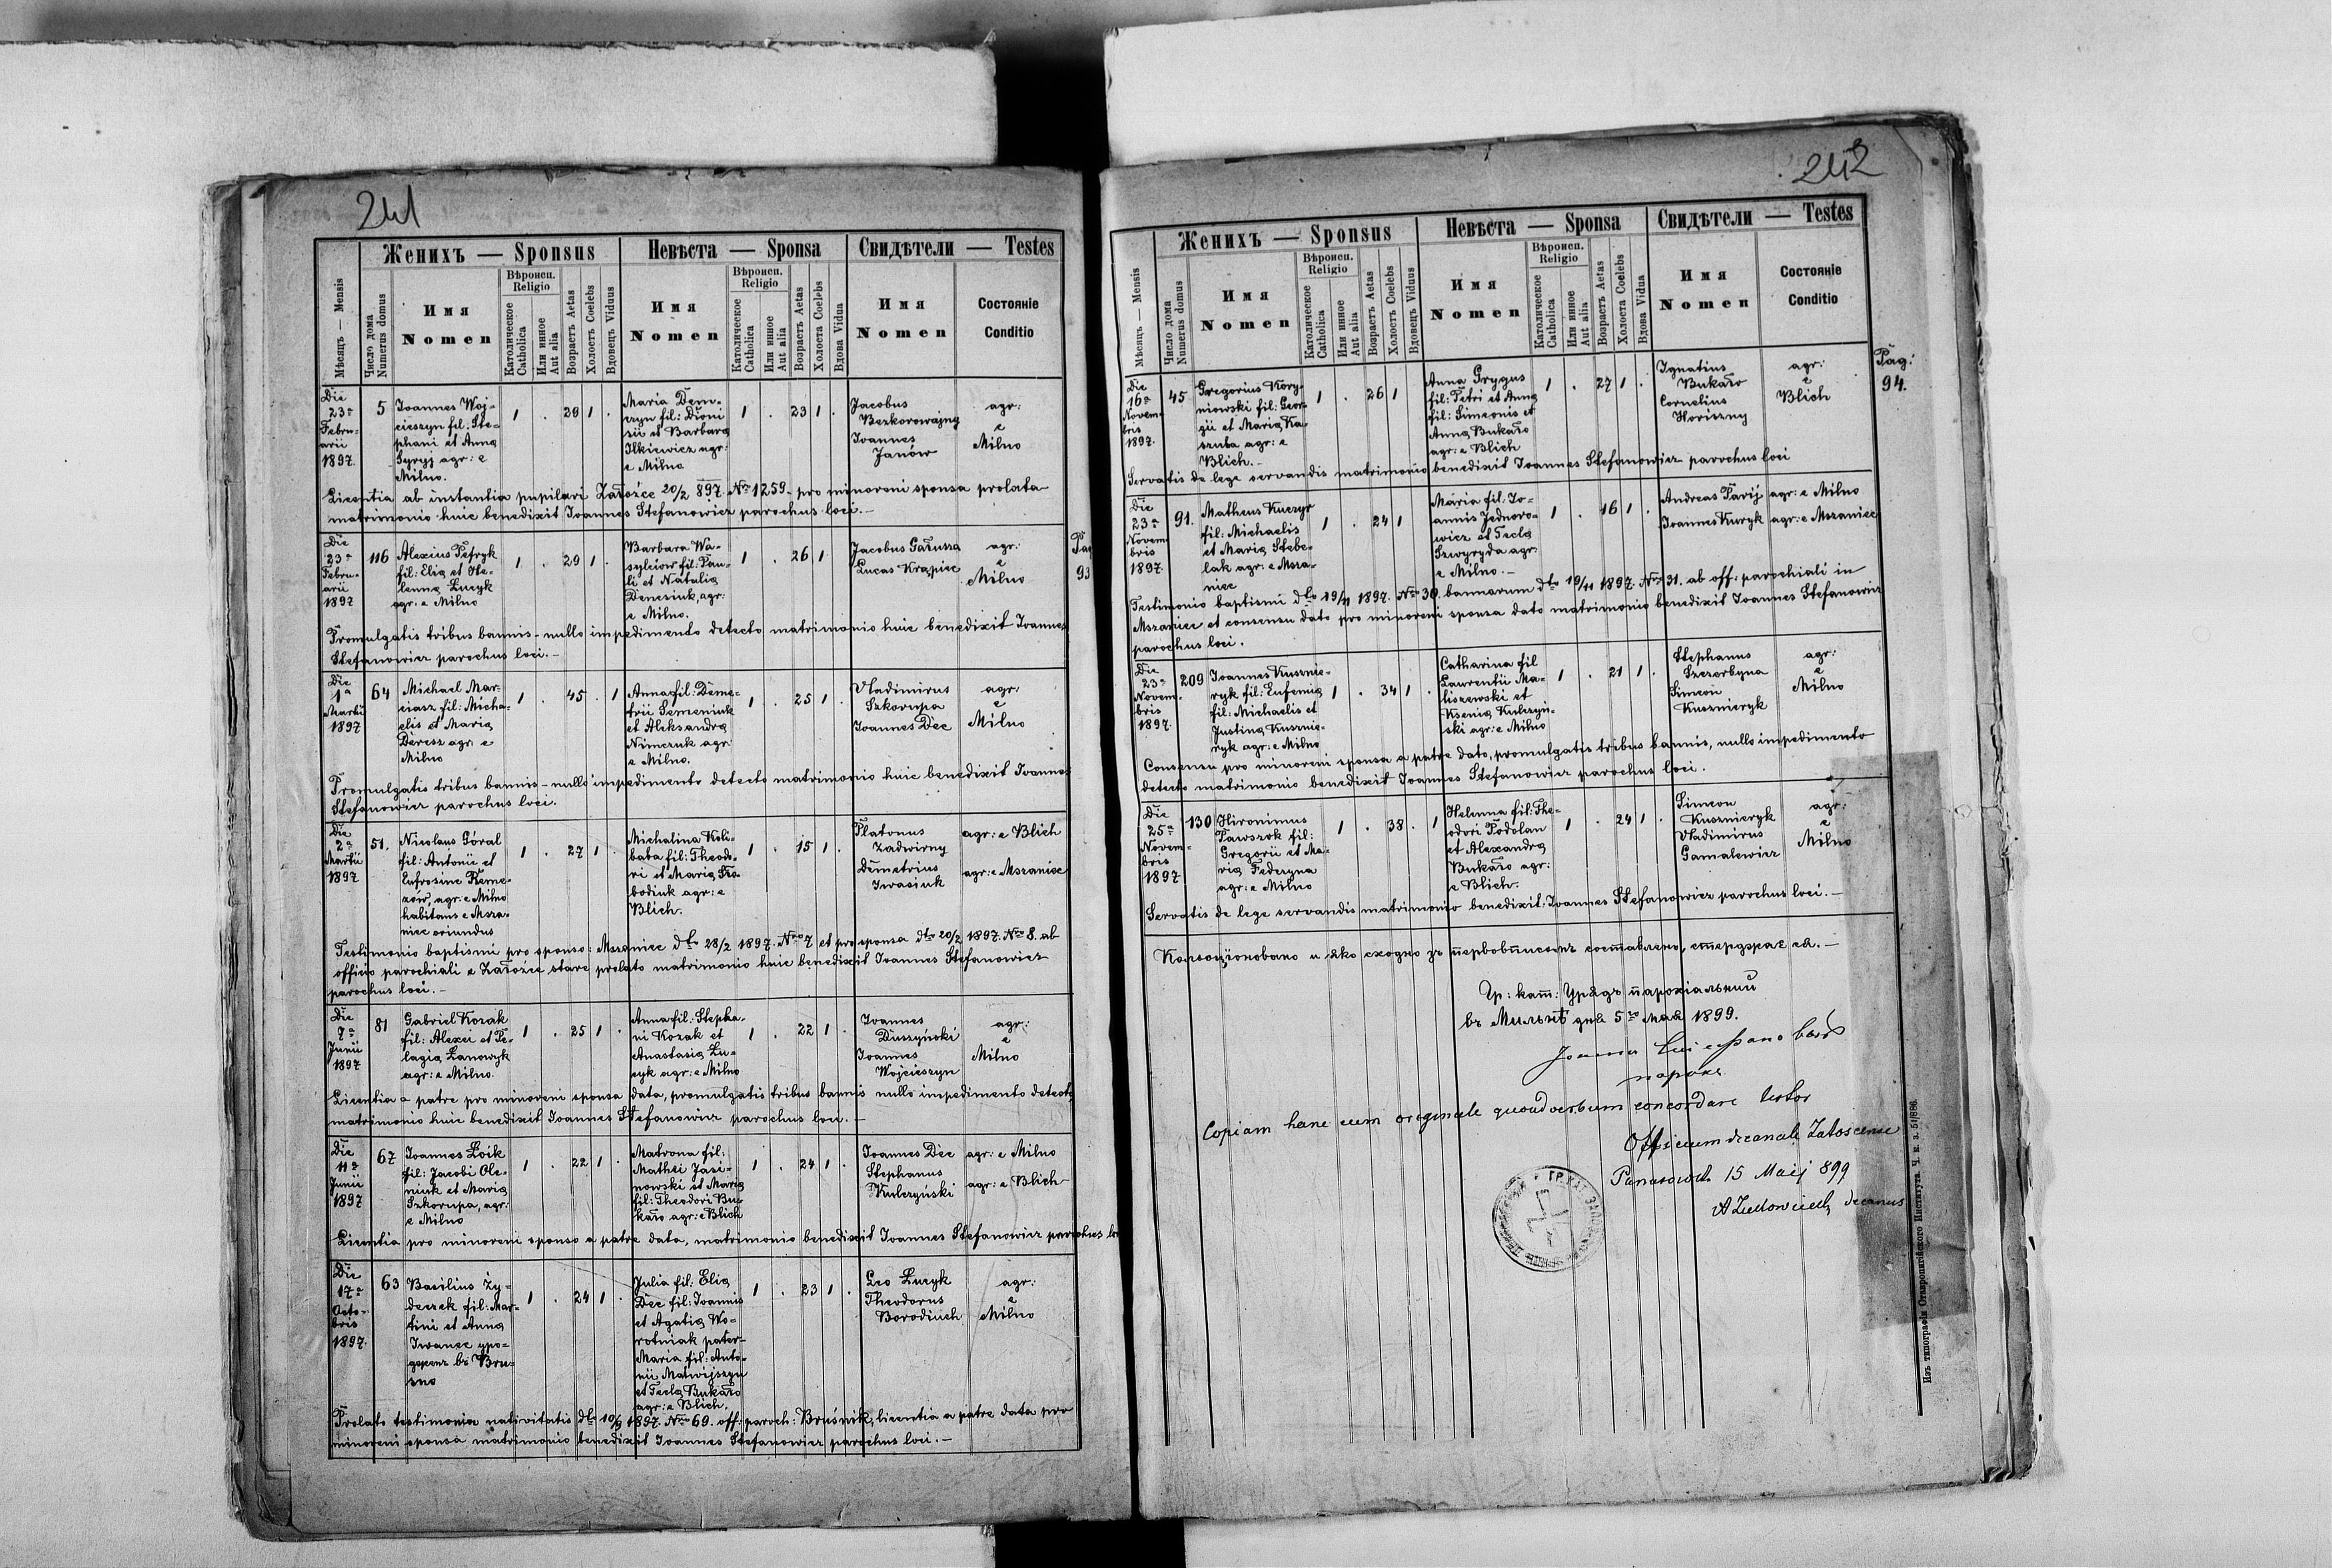 241
Женихъ — Sponsus
Невѣста — Sponsa
Свидѣтели — Testes
Мѣсяцъ — Mensis
Число дома
Numerus domus
Имя
Nomen
Вѣроисп.
Religio
Католическое
Catholica
Или инное
Aut alia
Возрастъ Aetas
Холостъ Coelebs
Вдовецъ Viduus
Имя
Nomen
Вѣроисп.
Religio
Католическое
Catholica
Или инное
Aut alia
Возрастъ Aetas
Холоста Coelebs
Вдова Vidua
Имя
Nomen
Состояніе
Conditio
Die
23ª
Febru-
arii
1897.
5
Joannes Woj-
cieszyn fil: Ste-
phani et Anna
Syryj agr: e
Milno.
1 . 29 1 .
Maria Dem-
czyn fil: Dioni
sii et Barbara
Ilkiewicz agr:
e Milno
1 . 23 1 .
Jacobus
Bezkorowajny
Joannes
Janów
agr:
e
Milno
Licentia ab instantia pupilari Załośce 20/2 897. Nro 1259. pro minoreni sponsa prolata
matrimonio huic benedixit Joannes Stefanowicz parochus loci.—
Die
23ª
Febru-
arii
1897
116
Alexius Petryk
fil: Elia et He-
lenna Łucyk
agr: e Milno
1 . 29 1 .
Barbara Wa-
sylciów fil: Pau-
li et Natalia
Denesiuk, agr:
e Milno.
1 . 26 1
Jacobus Gałussa
Lucas Krąpiec
agr:
e
Milno
Pag
93
Promulgatis tribus bannis — nullo impedimento detecto matrimonio huic benedixit Joannes
Stefanowicz parochus loci.—
Die
1ª
Martii
1897
64
Michael Mar-
ciasz fil: Micha-
elis et Maria
Deresz agr: e
Milno
1 . 45 . 1
Anna fil: Deme-
trii Semeniuk
et Aleksandra
Nimczuk agr:
e Milno.
1 . 25 1 .
Vladimirus
Szkorupa
Joannes Dec
agr:
e
Milno
Promulgatis tribus bannis — nullo impedimento detecto matrimonio huic benedixit Joannes
Stefanowicz parochus loci.
Die
2ª
Martii
1897
51.
Nicolaus Góral
fil: Antonii et
Eufrosine Reme-
zów, agr: e Milno
habitans e Mszra-
niec oriundus
1 . 27 1 .
Michalina Koli-
baba fil: Theodo-
ri et Maria Sło-
bodiuk agr: e
Blich.
1 . 15 1 .
Platonus
Zadwirny
Demetrius
Iwasiuk
agr: e Blich
agr: e Mszaniec
Testimonio baptismi pro sponso: Mszaniec dto 28/2 1897. Nro 7 et pro sponsa dto 20/2 1897. Nro 8. ab
officio parochiali e Załozce stare prolato matrimonio huic benedixit Joannes Stefanowicz
parochus loci.—
Die
7ª
Junii
1897
81
Gabriel Kozak
fil: Alexei et Pe-
lagia Łanowyk
agr: e Milno.
1 . 25 1 .
Anna fil: Stepha-
ni Kozak et
Anastasia Łu-
cyk agr: e Milno
1 . 22 1 .
Joannes
Duszyński
Joannes
Wojcieszyn
agr:
e
Milno
Licentia a patre pro minoreni sponsa data, promulgatis tribus bannis nullo impedimento detecto
matrimonio huic benedixit Joannes Stefanowicz parochus loci.—
Die
11ª
Junii
1897
67
Joannes Łoik
fil: Jacobi Ole-
niuk et Maria
Szkorupa, agr:
e Milno
1 . 22 1 .
Matrona fil:
Mathei Jasi-
nowski et Maria
fil: Theodori Bu-
kało agr: e Blich
1 . 24 1 .
Joannes Dec
Stephanus
Kulczyński
agr: e Milno
agr: e Blich
Licentia pro minoreni sponso a patre data, matrimonio benedixit Joannes Stefanowicz parochus
Die
17ª
Octo-
bris
1897.
63
Basilius Zy-
deczek fil: Mar-
tini et Anna
Iwanec
въ Bru-
sno
1 . 24 1 .
Julia fil: Elia
Dec fil: Joannis
et Agatia Wo-
rotniak pater-
Maria fil: Anto-
nii Matwijszyn
et Tecla Bukało
agr: e Blich,
1 . 23 1 .
Leo Łucyk
Theodorus
Borodiuch
agr:
e
Milno
Prolato testimonia nativitatis dto 10/9 1897. Nro 69. off: paroch: Bruśnik, licentia a patre data pro
minoreni sponsa matrimonio benedixit Joannes Stefanowicz parochus loci.—
242
Женихъ — Sponsus
Невѣста — Sponsa
Свидѣтели — Testes
Мѣсяцъ — Mensis
Число дома
Numerus domus
Имя
Nomen
Вѣроисп.
Religio
Католическое
Catholica
Или инное
Aut alia
Возрастъ Aetas
Холостъ Coelebs
Вдовецъ Viduus
Имя
Nomen
Вѣроисп.
Religio
Католическое
Catholica
Или инное
Aut alia
Возрастъ Aetas
Холоста Coelebs
Вдова Vidua
Имя
Nomen
Состояніе
Conditio
Die
16ª
Novem-
bris
1897.
45
Gregorius Kory-
niowski fil: Geor-
gii et Maria Ka-
szuba agr: e
Blich.—
1 . 26 1
Anna Grygus
fil: Petri et Anna
fil: Simeonis et
Anna Bukało
agr: e Blich
1 . 27 1 .
Ignatius
Bukało
Cornelius
Horiszny
agr:
e
Blich
Pag:
94.
Servatis de lege servandis matrimonio benedixit Joannes Stefanowicz parochus loci
Die
23ª
Novem
bris
1897.
91.
Matheus Kuczyr
fil: Michaelis
et Maria Stebe-
lak agr: e Msza-
niec
1 . 24 1
Maria fil: Jo-
annis Jednoro-
wicz et Tecla
Szwyryda agr:
e Milno.—
1 . 16 1 .
Andreas Pavij
Joannes Kuryk
agr: e Milno
agr: e Mszaniec
Testimonio baptismi dto 19/11 1897. Nro 30. bannorum dto 19/11 1897. Nro 31. ab off: parochiali in
Mszaniec et consensu dato pro minoreni sponsa dato matrimonio benedixit Joannes Stefanowicz
parochus loci.
Die
23ª
Novem-
bris
1897.
209
Joannes Kusznie-
ryk fil: Eufemia
fil: Michaelis et
Justina Kusznie-
ryk agr: e Milno
1 . 34 1 .
Catharina fil
Laurentii Ma-
liszewski et
Ksenia Kulczyń-
ski agr: e Milno
1 . 21 1 .
Stephanus
Szczerbyna
Simeon
Kusznieryk
agr:
e
Milno
Consensu pro minoreni sponsa a patre dato, promulgatis tribus bannis, nullo impedimento
detecto matrimonio benedixit Joannes Stefanowicz parochus loci.
Die
25ª
Novem-
bris
1897
130
Hironimus
Pawszok fil:
Gregorii et Ma-
ria Federyna
agr: e Milno
1 . 38 . 1
Helenna fil: The-
odori Podolan
et Alexandra
Bukało agr:
e Blich.
1 . 24 1 .
Simeon
Kusznieryk
Vladimirus
Gamalewicz
agr:
e
Milno
Servatis de lege servandis matrimonio benedixit Joannes Stefanowicz parochus loci.—
и яко сходно зъ первописомъ составлено,
Гр: кат: Урядъ парохіальный
въ Мильнѣ дня 5го мая 1899.
парохъ
Copiam hanc cum originale quoad verbum concordare testor
Officium decanale Załoscense
Panasówka 15 Maij 899
decanus
Изъ типографіи Ставропигійского Института. Ч. к. а. 51/886.